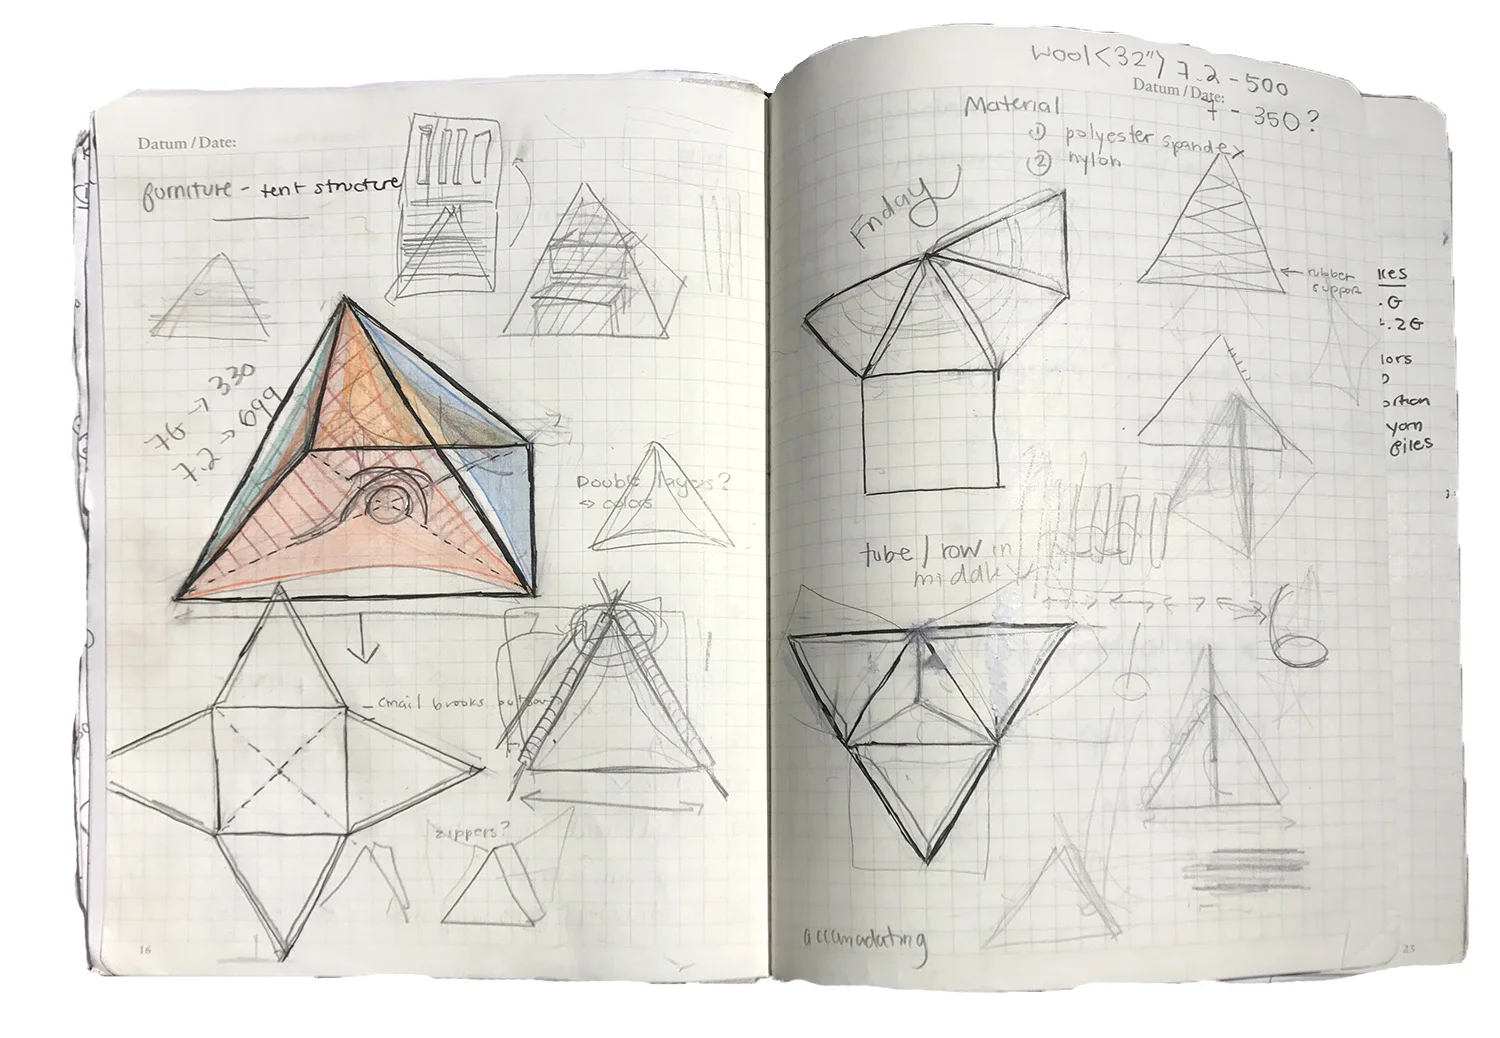 Datum / Date:
furniture - tent structure
7G → 330
7.2 → 699
Double layers?
⇔ colors
- email brooks
zippers?
16
wool (32") 7.2 - 500
Datum / Date:
7 - 350?
Material
① polyester spandex
② nylon
Friday
← rubber
support
tube / row in
middle
accomadating
23
.G
.2G
yarn